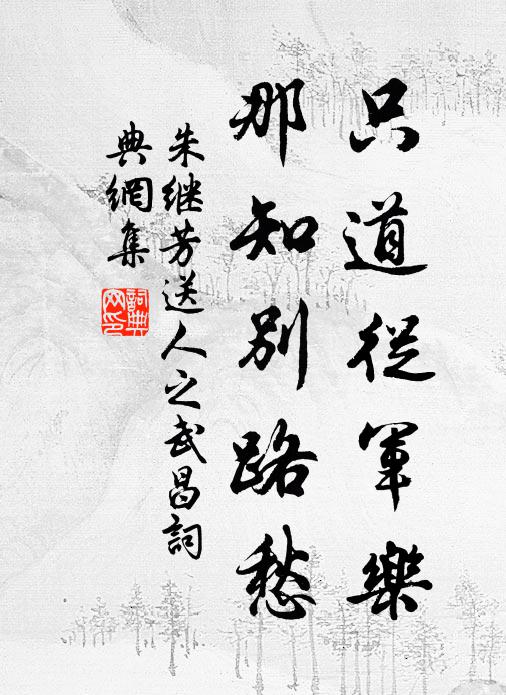 只道從軍樂
那知別路愁
朱继芳送人之武昌詞
典網集
詞典
网印